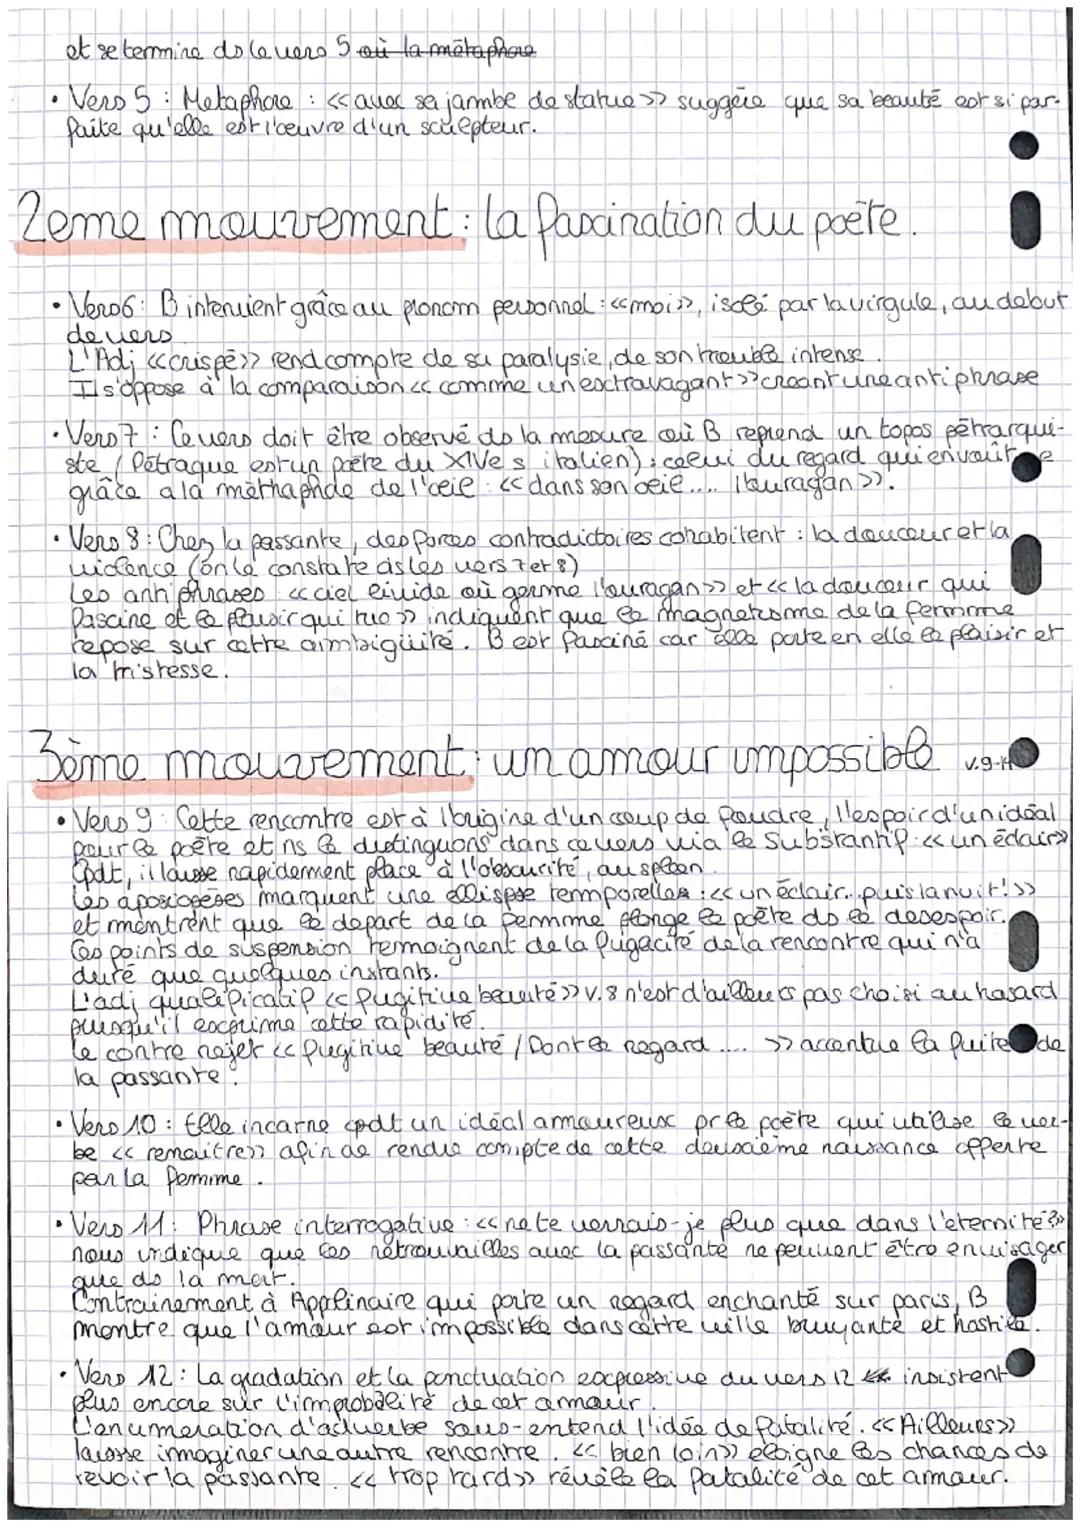 et se termine ds le vers 5 où la métaphore
• Vers 5 : Metaphore : << avec sa jambe de statue >> suggère que sa beauté est si par-
faite qu'elle est l'œuvre d'un sculpteur.
2eme mouvement : la fascination du poète.
• Vers 6 : B intervient grâce au pronom personnel : << moi >>, isolé par la virgule, au debut
de vers
L'Adj << crispé >> rend compte de sa paralysie, de son trouble intense.
Il s'oppose à la comparaison << comme un extravagant >> créant une antiphrase
• Vers 7 : Ce vers doit être observé ds la mesure où B reprend un topos pétrarqui-
ste (Pétraque est un poète du XIVe s italien) : celui du regard qui envoûte
grâce a la méthaphde de l'œil : << dans son œil .... l'ouragan >>.
• Vers 8 : Chez la passante, des forces contradictoires cohabitent : la douceur et la
violence (on le constate ds les vers 7 et 8)
Les antiphrases << ciel livide où germe l'ouragan >> et << la douceur qui
fascine et le plaisir qui tue >> indiquent que le magnetisme de la femme
repose sur cette ambigüité. B est fasciné car elle porte en elle le plaisir et
la tristesse.
3ème mouvement : un amour impossible v.9-14
• Vers 9 : Cette rencontre est à l'origine d'un coup de foudre, l'espoir d'un idéal
pour le poète et ns le distinguons dans ce vers via le Substantif : << un éclair >>
Cpdt, il laisse rapidement place à l'obscurité, au spleen.
Les aposiopèses marquent une ellispse temporelles : << un éclair... puis la nuit ! >>
et montrent que le depart de la femme plonge le poète ds le desespoir.
Ces points de suspension temoignent de la fugacité de la rencontre qui n'a
duré que quelques instants.
L'adj qualificatif << fugitive beauté >> v.8 n'est d'ailleurs pas choisi au hasard
puisqu'il exprime cette rapidité.
Le contre rejet << fugitive beauté / Dont le regard .... >> accentue la fuite de
la passante.
• Vers 10 : Elle incarne cpdt un idéal amoureux pr le poète qui utilise le ver-
be << renaître >> afin de rendre compte de cette deuxième naissance offerte
par la femme.
• Vers 11 : Phrase interrogative : << ne te verrais-je plus que dans l'eternité ? >>
nous indique que les retrouvailles avec la passante ne peuvent être envisager
que ds la mort.
Contrairement à Applinaire qui porte un regard enchanté sur paris, B
montre que l'amour est impossible dans cette ville bruyante et hostile.
• Vers 12 : La gradation et la ponctuation expressive du vers 12 insistent
plus encore sur l'improbabilité de cet amour.
L'enumeration d'adverbe sous-entend l'idée de fatalité. << Ailleurs >>
laisse immaginer une autre rencontre. << bien loin >> éloigne les chances de
revoir la passante. << trop tard >> révèle la fatalité de cet amour.